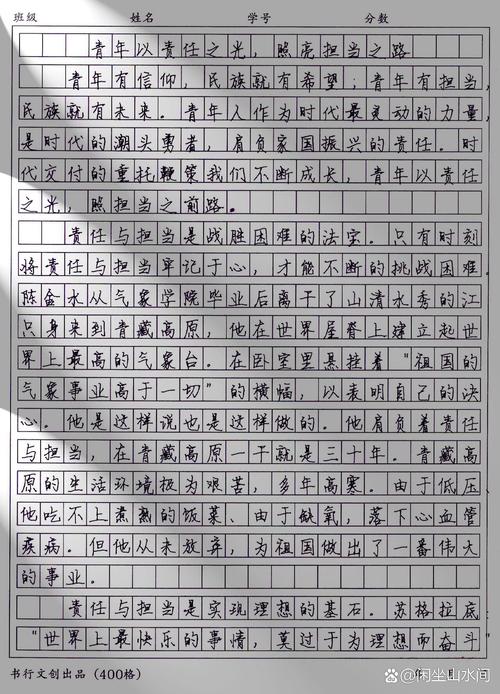 班级 姓名 学号 分数
青年以责任之光，照亮担当之路
青年有信仰，民族就有希望；青年有担当，
民族就有未来。青年人作为时代最灵动的力量，
是时代的潮头勇者，肩负家国振兴的责任。时
代交付的重托鞭策我们不断成长，青年以责任
之光，照担当之前路。
责任与担当是战胜困难的法宝。只有时刻
将责任与担当牢记于心，才能不断的挑战困难。
陈金水从气象学院毕业后离开了山清水秀的江
只身来到青藏高原，他在世界屋脊上建立起世
界上最高的气象台。在卧室里悬挂着“祖国的
气象事业高于一切”的横幅，以表明自己的决
心。他是这样说也是这样做的。他肩负着责任
与担当，在青藏高原一干就是三十年。青藏高
原的生活环境极为艰苦，多年高寒。由于低压、
他吃不上煮熟的饭菜、由于缺氧，落下心血管
疾病。但他从未放弃，为祖国做出了一番伟大
的事业。
责任与担当是实现理想的基石。苏格拉底：
“世界上最快乐的事情，莫过于为理想而奋斗”
书行文创出品（400格） 年 月
@闲坐山水间